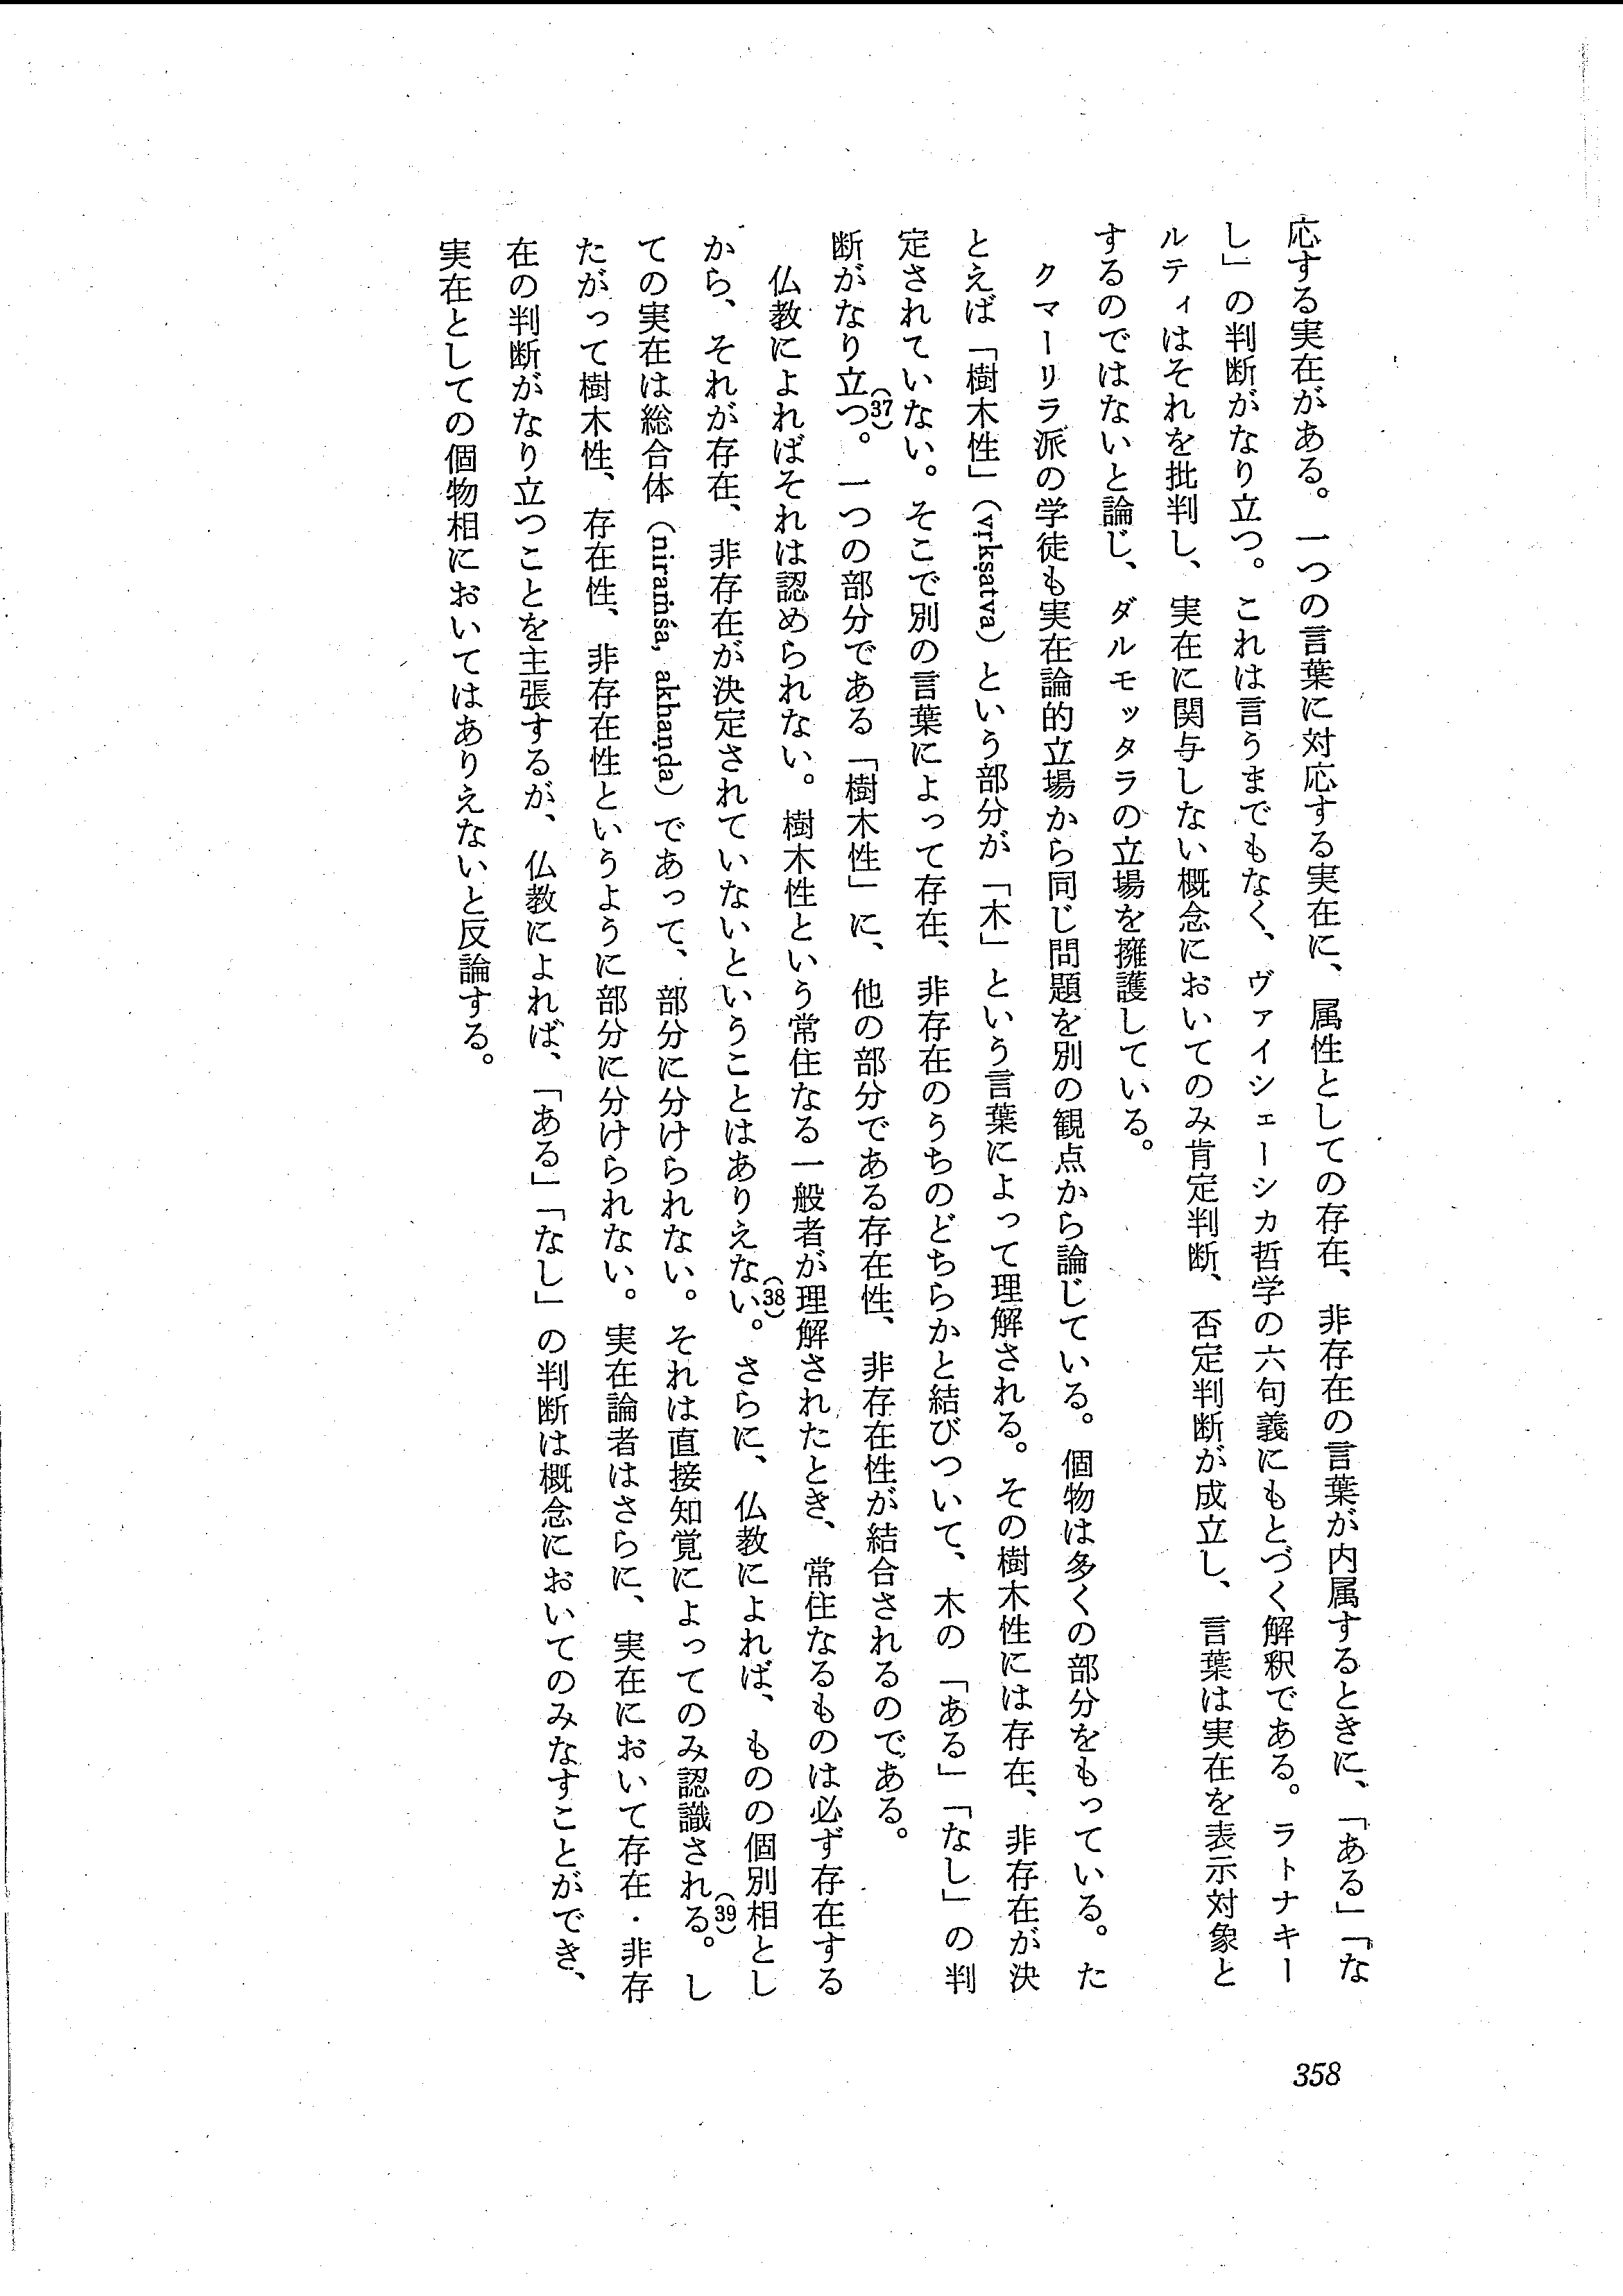 応する実在がある。一つの言葉に対応する実在に、属性としての存在、非存在の言葉が内属するときに、「ある」「な
し」の判断がなり立つ。これは言うまでもなく、ヴァイシェーシカ哲学の六句義にもとづく解釈である。ラトナキー
ルティはそれを批判し、実在に関与しない概念においてのみ肯定判断、否定判断が成立し、言葉は実在を表示対象と
するのではないと論じ、ダルモッタラの立場を擁護している。
クマーリラ派の学徒も実在論的立場から同じ問題を別の観点から論じている。個物は多くの部分をもっている。た
とえば「樹木性」（vṛkṣatva）という部分が「木」という言葉によって理解される。その樹木性には存在、非存在が決
定されていない。そこで別の言葉によって存在、非存在のうちのどちらかと結びついて、木の「ある」「なし」の判
断がなり立つ。(37)一つの部分である「樹木性」に、他の部分である存在性、非存在性が結合されるのである。
仏教によればそれは認められない。樹木性という常住なる一般者が理解されたとき、常住なるものは必ず存在する
から、それが存在、非存在が決定されていないということはありえない。(38)さらに、仏教によれば、ものの個別相とし
ての実在は総合体（niraṁśa, akhaṇḍa）であって、部分に分けられない。それは直接知覚によってのみ認識される。(39)し
たがって樹木性、存在性、非存在性というように部分に分けられない。実在論者はさらに、実在において存在・非存
在の判断がなり立つことを主張するが、仏教によれば、「ある」「なし」の判断は概念においてのみなすことができ、
実在としての個物相においてはありえないと反論する。
358